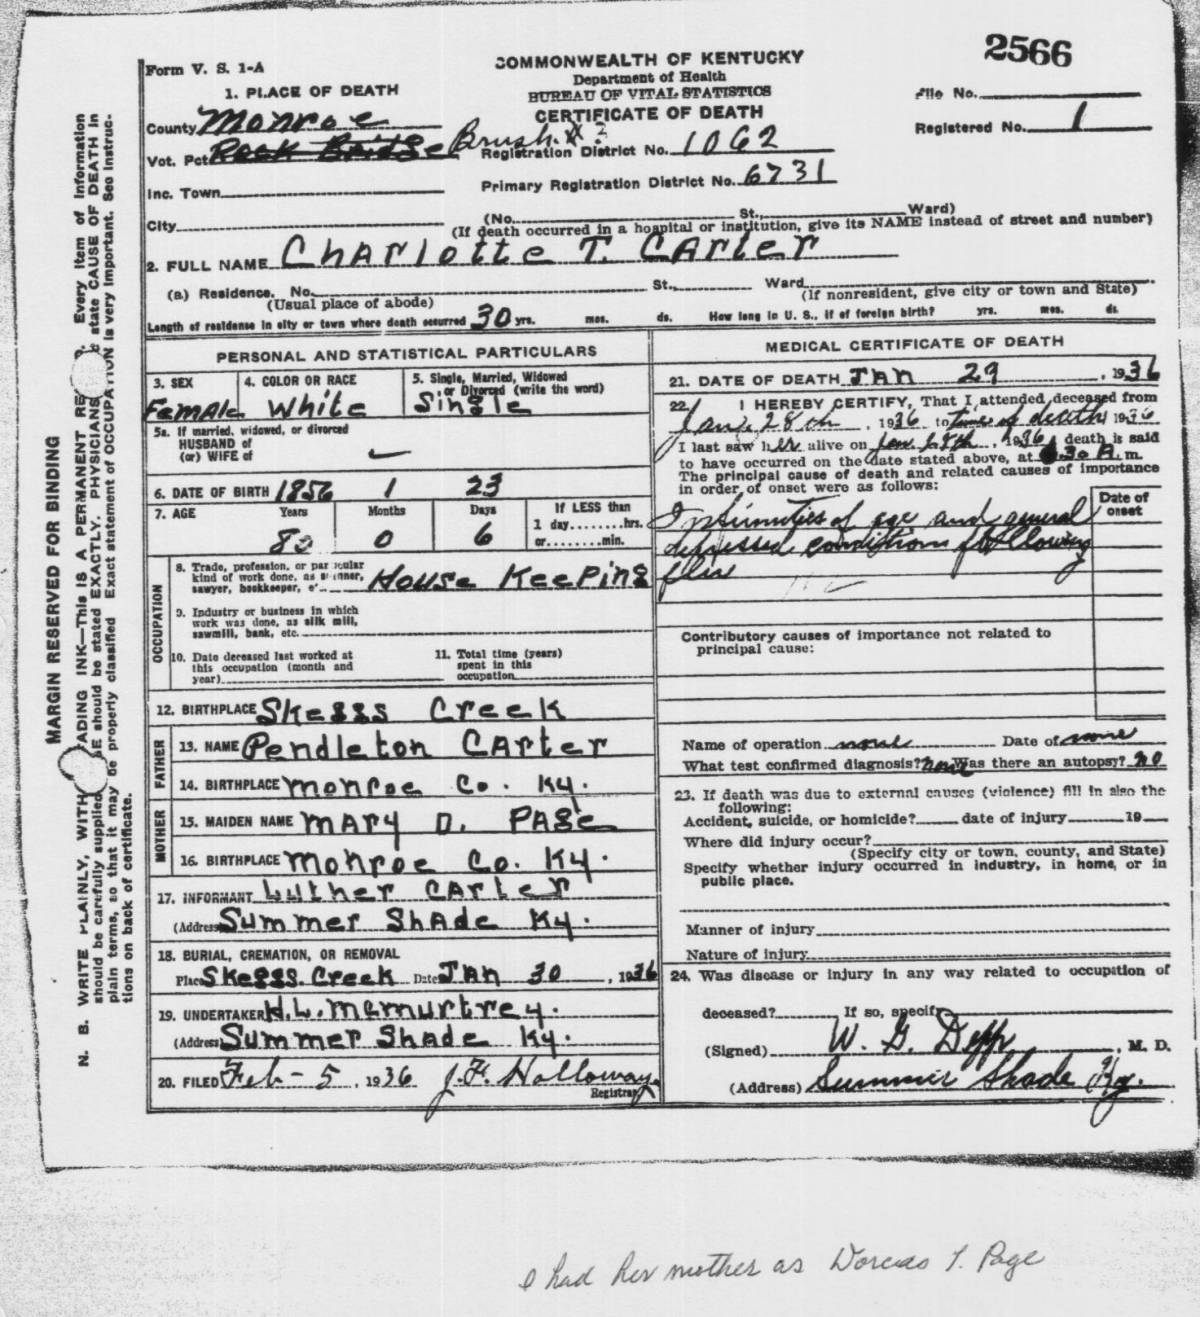 2566
Form V. S. 1-A
COMMONWEALTH OF KENTUCKY
Department of Health
BUREAU OF VITAL STATISTICS
CERTIFICATE OF DEATH
File No.
Registered No. 1
1. PLACE OF DEATH
County Monroe
Vot. Pct Rock Bridge Brush. X ?
Registration District No. 1062
Inc. Town
Primary Registration District No. 6731
City (No. St., Ward)
(If death occurred in a hospital or institution, give its NAME instead of street and number)
2. FULL NAME Charlotte T. Carter
(a) Residence. No. St., Ward
(Usual place of abode) (If nonresident, give city or town and State)
Length of residence in city or town where death occurred 30 yrs. mos. ds. How long in U. S., if of foreign birth? yrs. mos. ds.
PERSONAL AND STATISTICAL PARTICULARS
3. SEX Female
4. COLOR OR RACE White
5. Single, Married, Widowed
or Divorced (write the word)
Single
5a. If married, widowed, or divorced
HUSBAND of
(or) WIFE of
6. DATE OF BIRTH 1856 1 23
7. AGE Years Months Days If LESS than
80 0 6 1 day........hrs.
or.........min.
OCCUPATION
8. Trade, profession, or particular
kind of work done, as spinner,
sawyer, bookkeeper, etc. House Keeping
9. Industry or business in which
work was done, as silk mill,
sawmill, bank, etc.
10. Date deceased last worked at
this occupation (month and
year)
11. Total time (years)
spent in this
occupation
12. BIRTHPLACE Skeggs Creek
FATHER
13. NAME Pendleton Carter
14. BIRTHPLACE Monroe Co. Ky.
MOTHER
15. MAIDEN NAME Mary D. Page
16. BIRTHPLACE Monroe Co. Ky.
17. INFORMANT Luther Carter
(Address Summer Shade Ky.
18. BURIAL, CREMATION, OR REMOVAL
Place Skeggs. Creek Date Jan 30, 1936
19. UNDERTAKER H.L. McMurtrey.
(Address) Summer Shade Ky.
20. FILED Feb-5, 1936 J.F. Holloway.
Registrar
MEDICAL CERTIFICATE OF DEATH
21. DATE OF DEATH Jan 29, 1936
22. I HEREBY CERTIFY, That I attended deceased from
Jan, 28th, 1936 to time of death 1936
I last saw her alive on Jan 28th, 1936, death is said
to have occurred on the date stated above, at 6.30 A. m.
The principal cause of death and related causes of importance
in order of onset were as follows:
Date of
onset
Infirmities of age and general
depressed condition following
flu
Contributory causes of importance not related to
principal cause:
Name of operation none Date of none
What test confirmed diagnosis? none Was there an autopsy? no
23. If death was due to external causes (violence) fill in also the
following:
Accident, suicide, or homicide? date of injury 19
Where did injury occur?
(Specify city or town, county, and State)
Specify whether injury occurred in industry, in home, or in
public place.
Manner of injury
Nature of injury
24. Was disease or injury in any way related to occupation of
deceased? If so, specify
(Signed) W. G. Depp, M. D.
(Address) Summer Shade Ky.
MARGIN RESERVED FOR BINDING
N. B. WRITE PLAINLY, WITH ADING INK—This is A PERMANENT RE D. Every item of information
should be carefully supplied. E should be stated EXACTLY. PHYSICIANS state CAUSE OF DEATH in
plain terms, so that it may be properly classified. Exact statement of OCCUPATION is very important. See instruc-
tions on back of certificate.
I had her mother as Dorcas T. Page